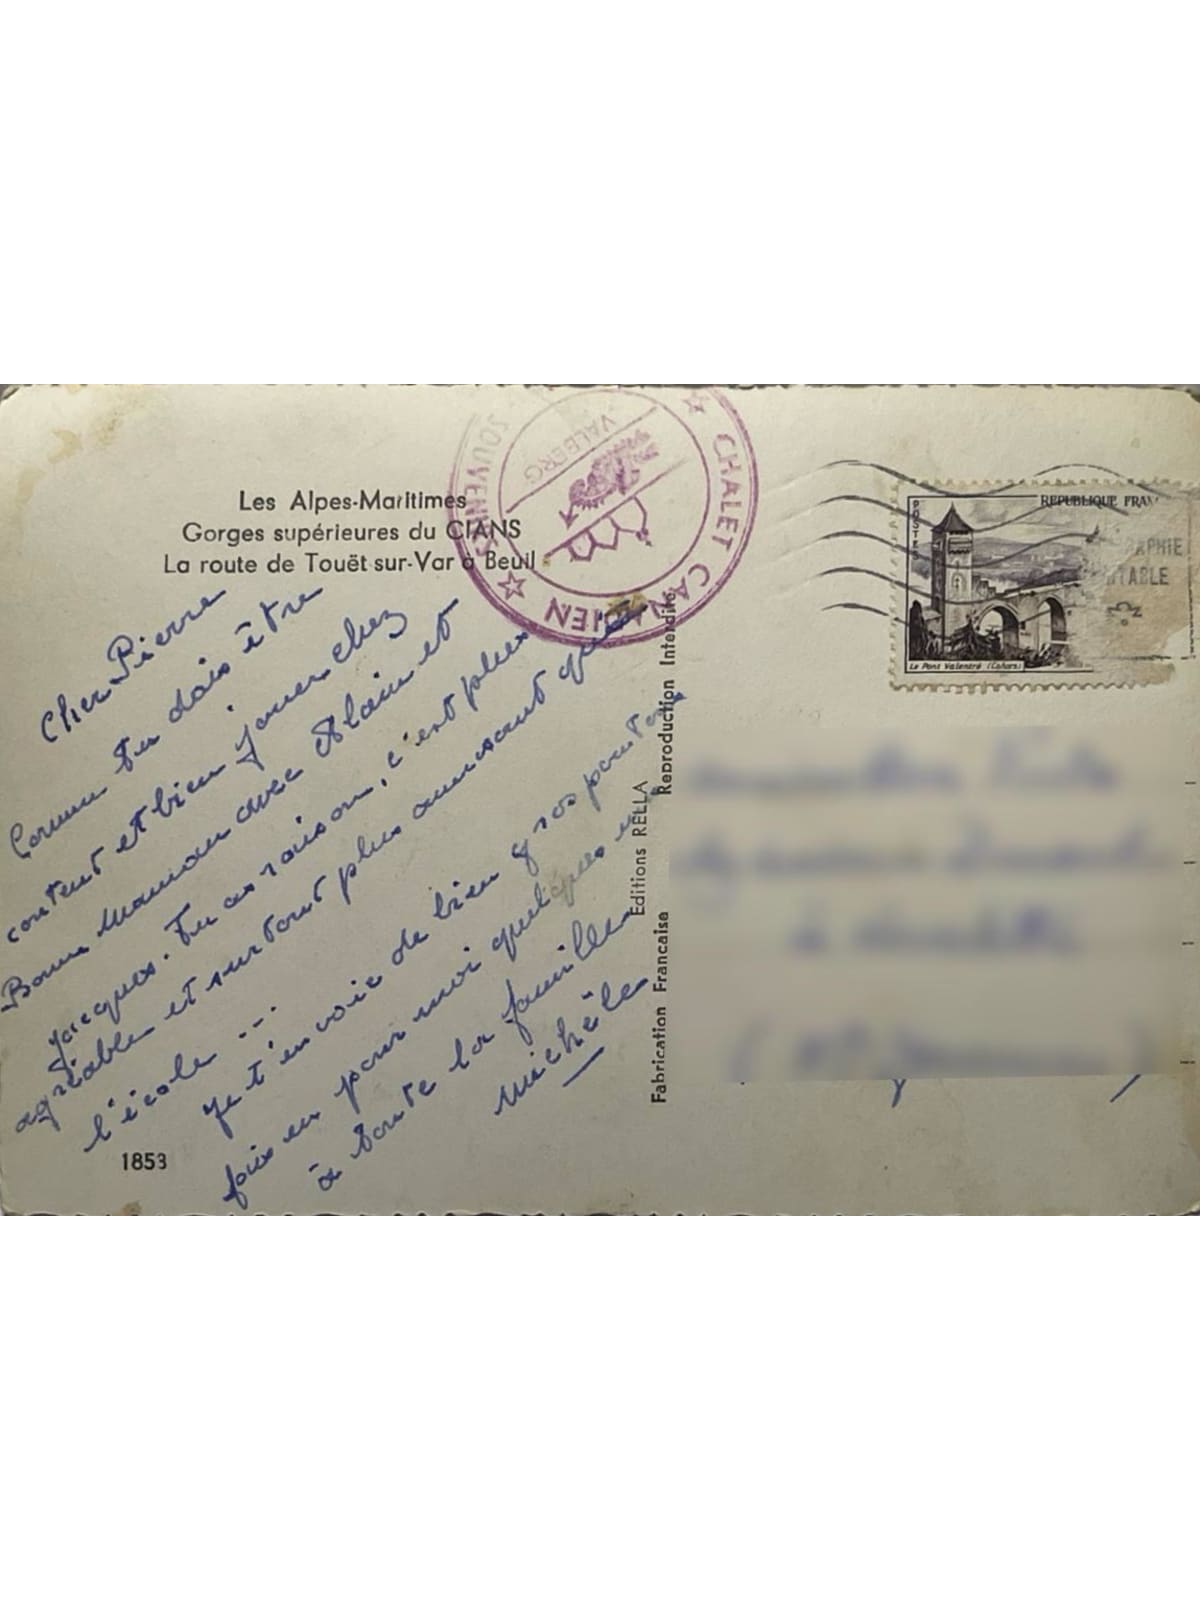 Les Alpes-Maritimes
Gorges supérieures du CIANS
La route de Touët-sur-Var à Beuil
SOUVENIRS ☆ CHALET CANADIEN ☆
VALBERG
POSTES
REPUBLIQUE FRAN
Le Pont Valentré (Cahors)
RAPHIE
TABLE
Cher Pierre
Comme tu dois être
content et bien jouer chez
Bonne Maman avec Alain et
Jacques. Tu as raison, c'est plus
agréable et surtout plus amusant que
l'école ...
Je t'envoie de bien gros
fais en pour moi quelques uns
à toute la famille
Michèle
1853
Fabrication Française
Editions RELLA
Reproduction Interdite